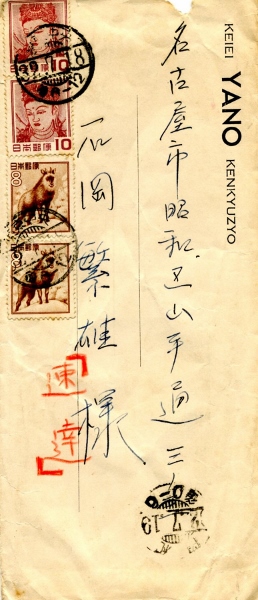 KEIEI YANO KENKYUZYO
名古屋市昭和区山手通三ノ
石岡繁雄様
速達
日本郵便
10
日本郵便
10
日本郵便
8
日本郵便
8